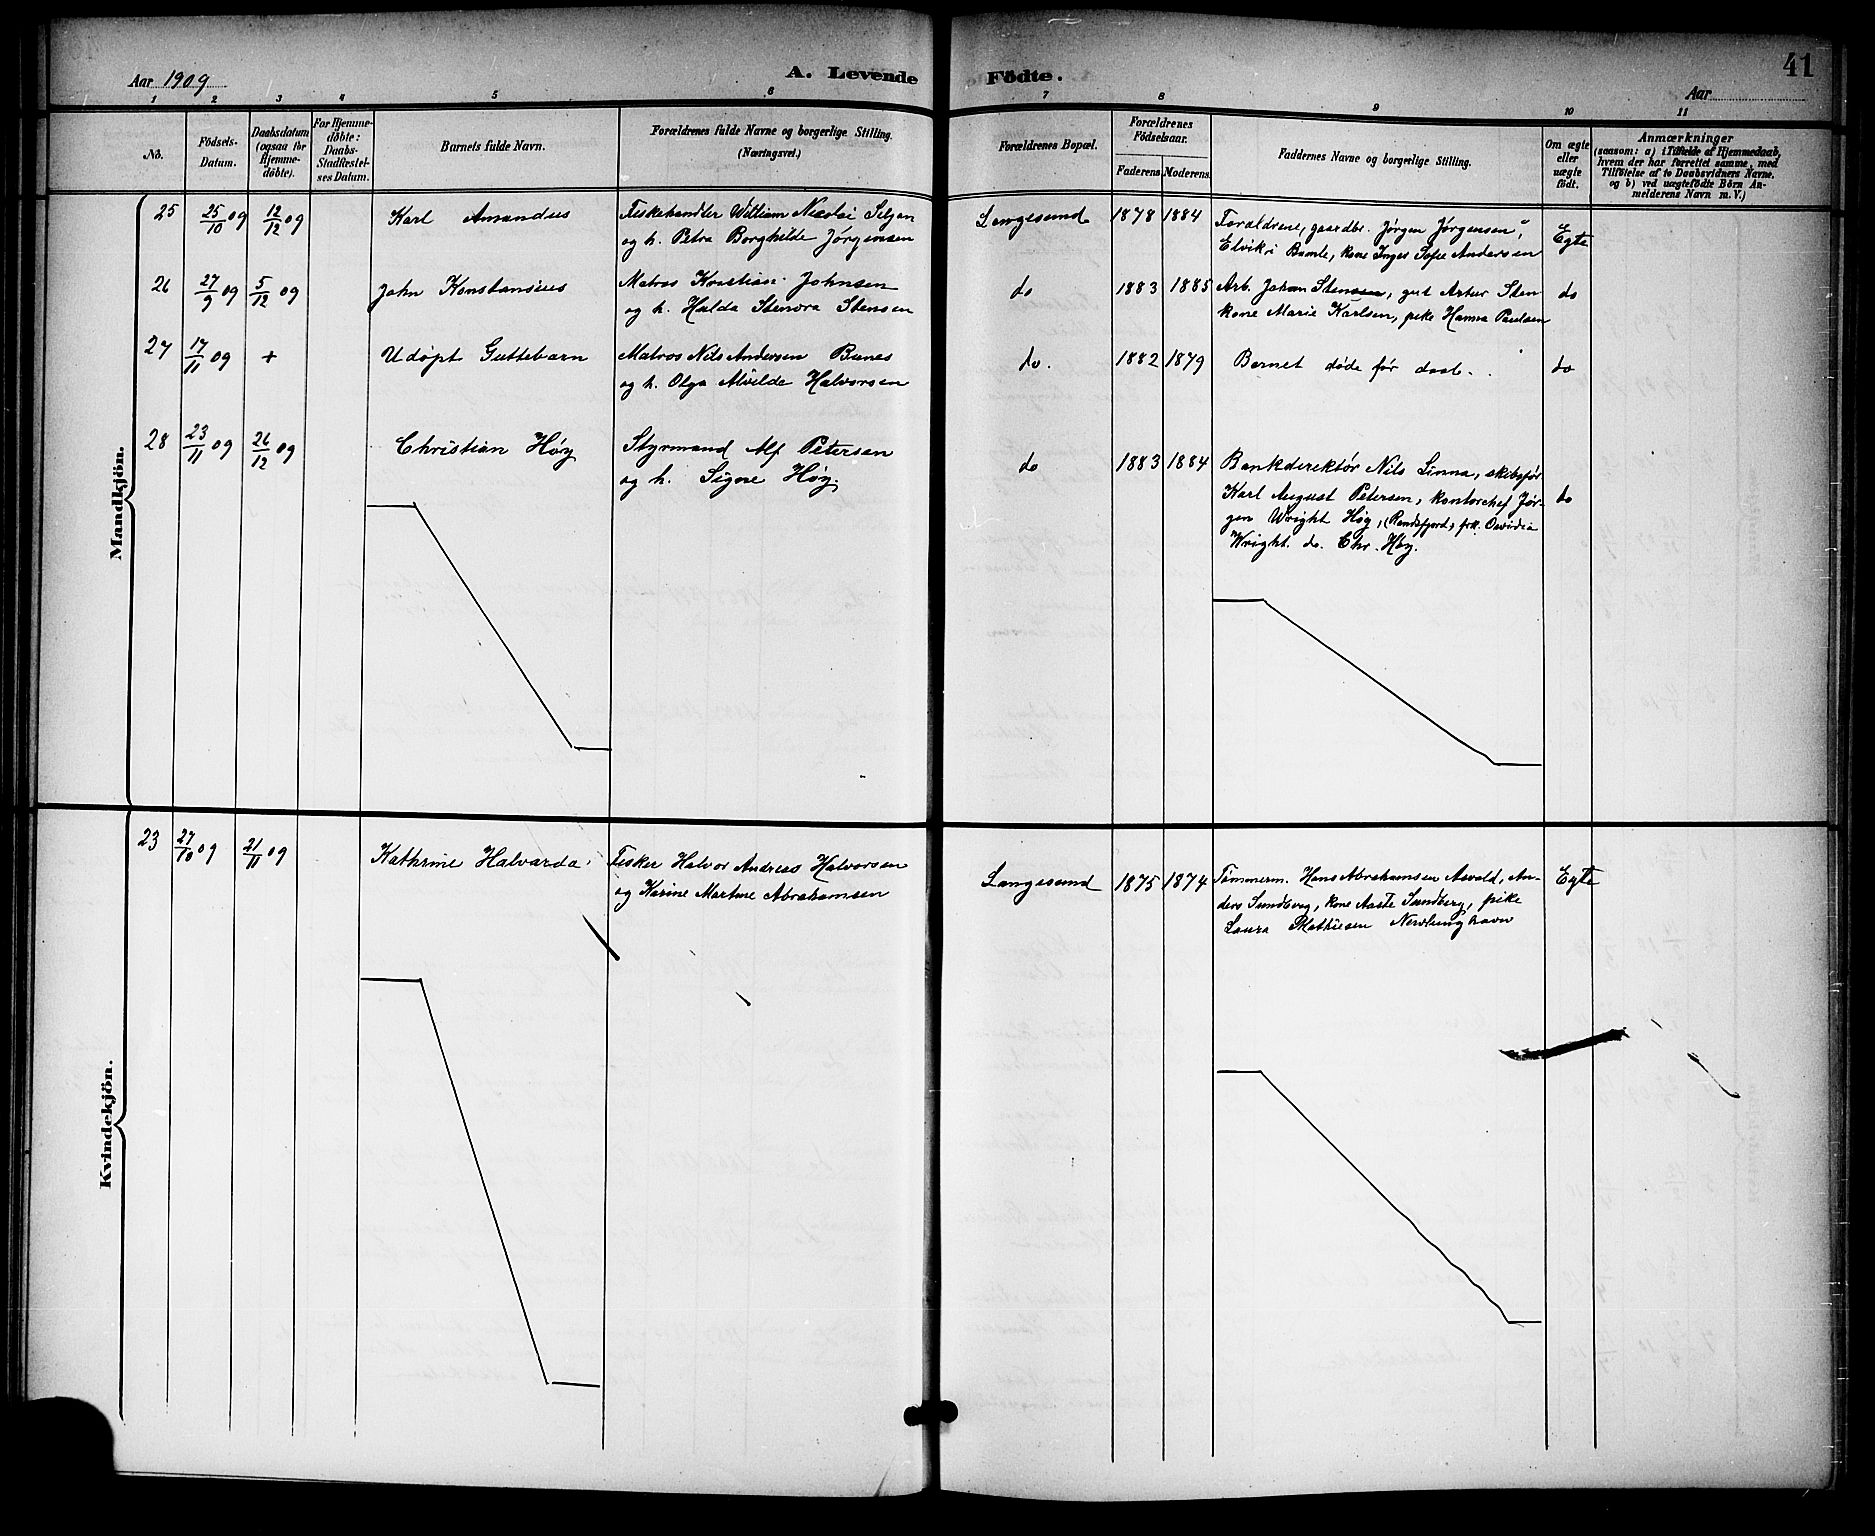 41
Aar 1909
A. Levende Födte.
Aar
1 2 3 4 5 6 7 8 9 10 11
No.
Födsels-Datum.
Daabsdatum (ogsaa for Hjemme-döbte).
For Hjemme-döbte: Daabs-Stadfæstel-ses Datum.
Barnets fulde Navn.
Forældrenes fulde Navne og borgerlige Stilling. (Næringsvei.)
Forældrenes Bopæl.
Forældrenes Födselsaar.
Faderens Moderens.
Faddernes Navne og borgerlige Stilling.
Om ægte eller uægte födt.
Anmærkninger
(saasom: a) i Tilfælde af Hjemmedaab,
hvem der har forrettet samme, med
Tilföielse af to Daabsvidners Navne,
og b) ved uægtefödte Börn An-
melderens Navn m. V.)
Mandkjön.
25 25/10 09 12/12 09 Karl Amandus Fiskehandler William Nicolai Seljan Langesund 1878 1884 Forældrene, gaardbr. Jørgen Jørgensen, Egte
og h. Petra Borghilde Jørgensen Elvik i Bamle, kone Inges Sofie Andersen
26 27/9 09 5/12 09 John Konstansius Matros Kristian Johnsen do 1883 1885 Arb. Johan Stensen, gut Artur Sten do
og h. Hulda Stenora Stensen kone Marie Karlsen, pike Hanna Paulsen
27 17/11 09 + Udöpt Guttebarn Matros Nils Andersen Bunes do. 1882 1879 Barnet døde før daab. do
og h. Olga Alvilde Halvorsen
28 23/11 09 26/12 09 Christian Høy Styrmand Alf Petersen do 1883 1884 Bankdirektør Nils Linna, skibsfør do
og h. Signe Høy. Karl August Petersen, kontorchef Jør-
gen Wright Høy, (Randsfjord), frk.
Wright. do. Chr. Høy.
Kvindekjön.
23 27/10 09 21/11 09 Kathrine Halvarda Fisker Halvor Andreas Halvorsen Langesund 1875 1874 Tømmerm. Hans Abrahamsen Asvald, An- Egte
og Karine Martine Abrahamsen ders Sundberg, kone Aaste Sundberg, pike
Laura Mathiesen Nevlunghavn